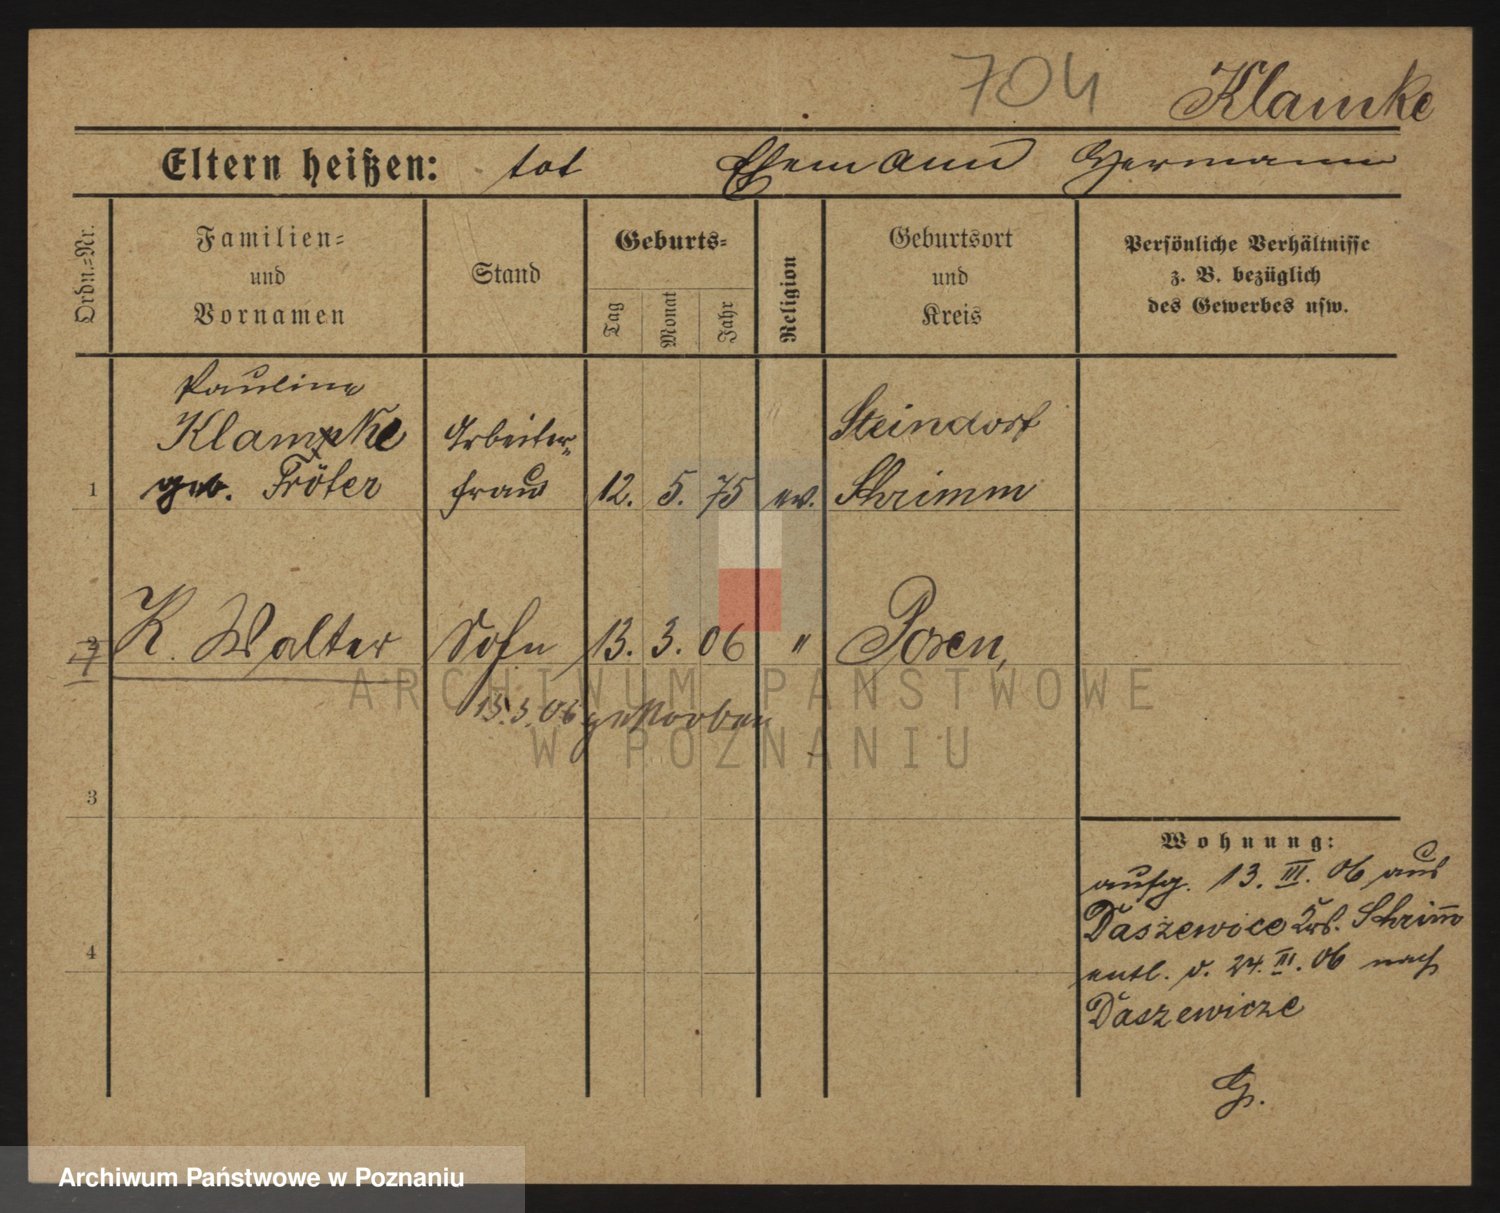 704 Klamke
Eltern heißen: tot Ehemann Hermann
Ordn.-Nr.
Familien-
und
Vornamen
Stand
Geburts-
Tag
Monat
Jahr
Religion
Geburtsort
und
Kreis
Persönliche Verhältnisse
z. B. bezüglich
des Gewerbes usw.
Pauline
Klamke Arbeiter- Steindorf
1 geb. Tröter frau 12. 5. 75 ev. Schrimm
2 K. Walter Sohn 13. 3. 06 " Posen,
13.3.06 gestorben
3
4
Wohnung:
aufg. 13. III. 06 aus
Daszewice Krs. Schrimm
entl. d. 24. III. 06 nach
Daszewicze
G.
ARCHIWUM PAŃSTWOWE
W POZNANIU
Archiwum Państwowe w Poznaniu